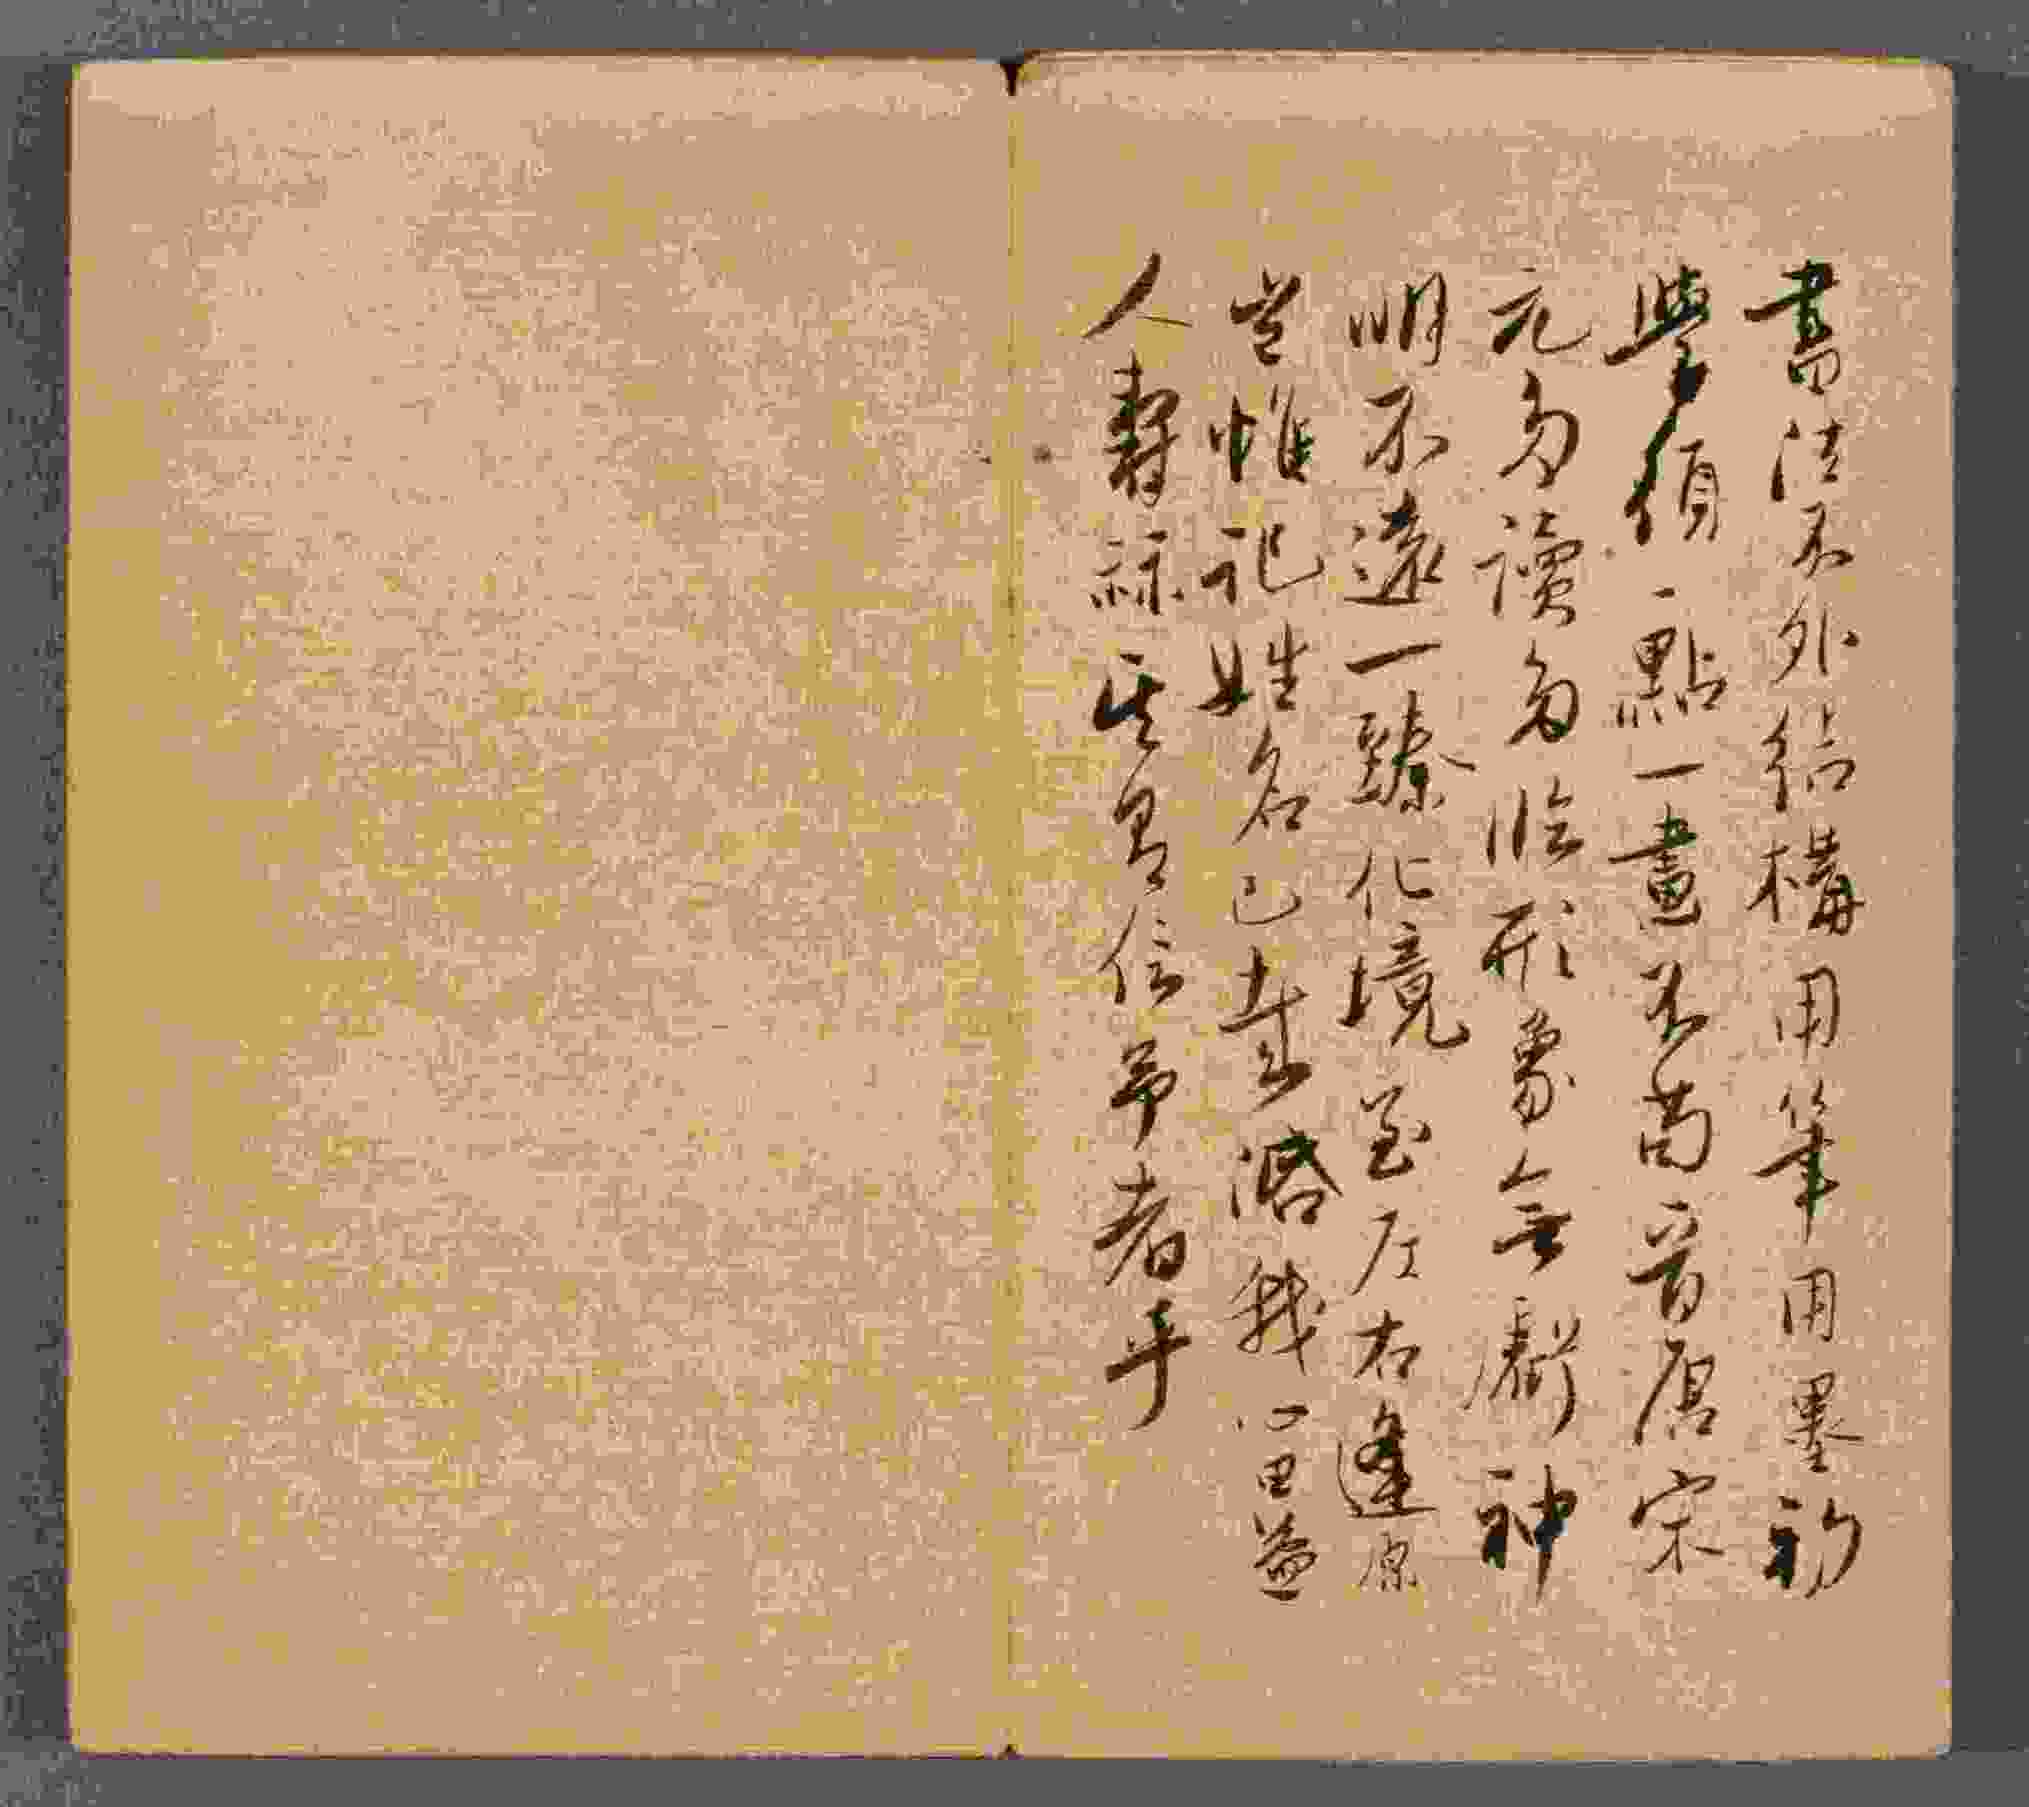 書法不外結構用筆用墨初
學須一點一畫不苟晉唐宋
元多讀多臨形象無虧神
明不遠一臻化境至左右逢源
豈惟記姓名已哉涵我心田益
人壽祿其曷信予者乎